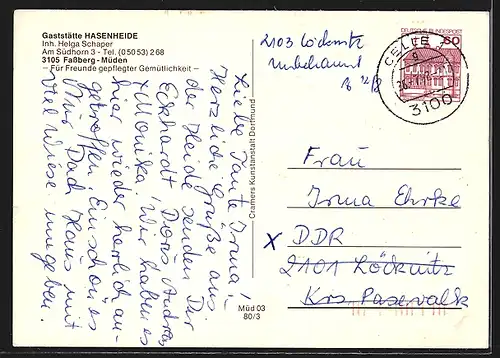 Gaststätte HASENHEIDE
Inh. Helga Schaper
Am Südhorn 3 - Tel. (05053) 268
3105 Faßberg-Müden
— Für Freunde gepflegter Gemütlichkeit —
Liebe Tante Irma!
Herzliche Grüße aus
der Heide senden Dir
Eckhardt, Doris, Andrea
+ Monika. Wir haben es
hier wieder herrlich an-
getroffen. Ein schönes
mit
viel Wiese umgeben.
Cramers Kunstanstalt Dortmund
Müd 03
80/3
2103 Löcknitz
Unbekannt
12/8
DEUTSCHE BUNDESPOST
60
CELLE
3100
Frau
Irma Ehrke
x DDR
2101 Löcknitz
Krs Pasewalk